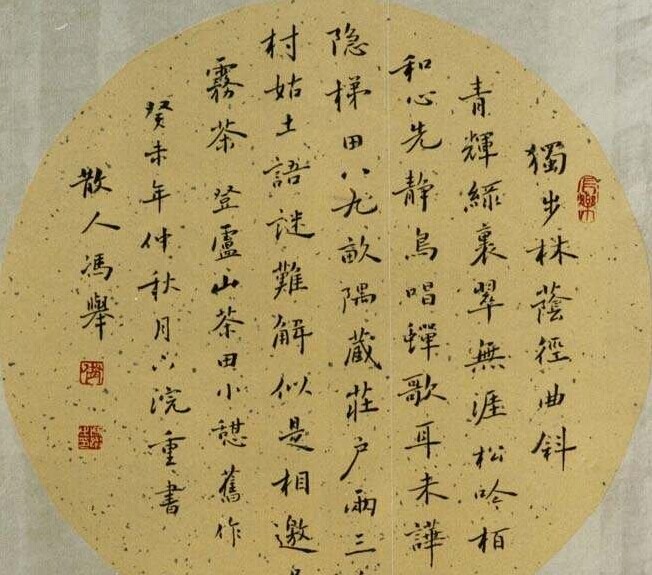 獨步株蔭徑曲斜
青輝緑裏翠無涯松吟柏
和心先靜鳥唱蟬歌耳未譁
隐梯田八九畝隅藏莊户兩三
村姑土語謎難解似是相邀
霧茶 登廬山茶田小憩舊作
癸未年仲秋月下浣重書
散人馮舉
長樂